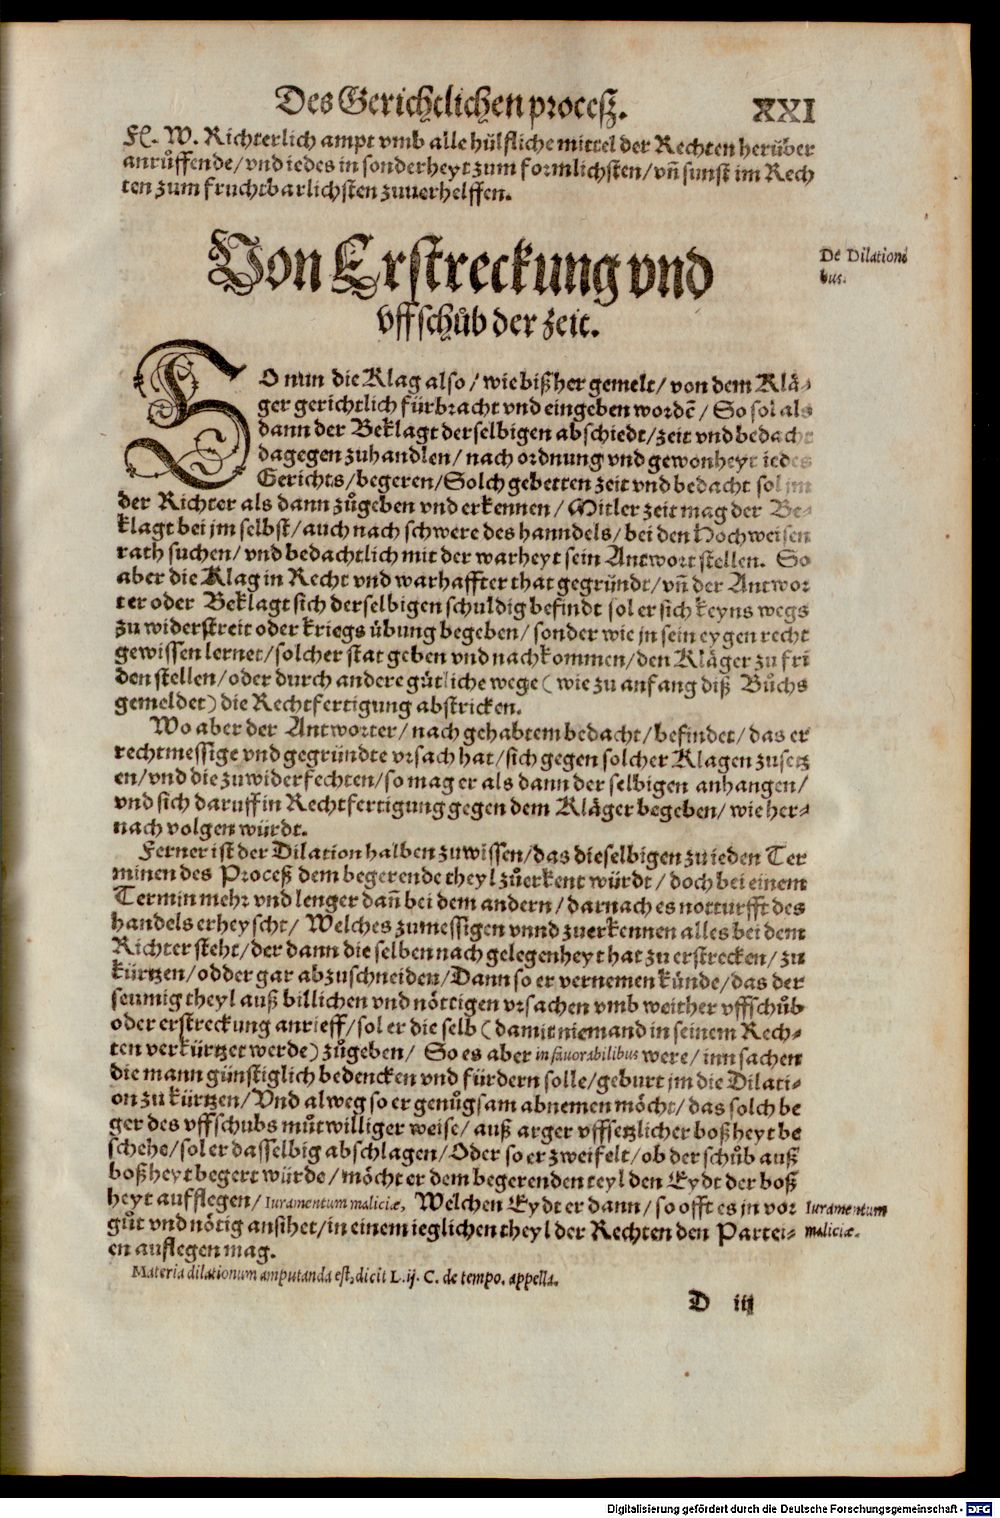 Des Gerichtlichen proceß. XXI
F. W. Richterlich ampt vmb alle hülfliche mittel der Rechten herüber
anrůffende / vnd iedes in sonderheyt zum formlichsten / vñ sunst im Rech
ten zum fruchtbarlichsten zuuerhelffen.
Von Erstreckung vnd
vffschůb der zeit.
De Dilationi
bus.
SO nun die Klag also / wie bißher gemelt / von dem Klä-
ger gerichtlich fürbracht vnd eingeben wordē / So sol als
dann der Beklagt derselbigen abschiedt / zeit vnd bedacht
dagegen zuhandlen / nach ordnung vnd gewonheyt iedes
Gerichts / begeren / Solch gebetten zeit vnd bedacht sol jm
der Richter als dann zůgeben vnd erkennen / Mitler zeit mag der Be-
klagt bei jm selbst / auch nach schwere des hanndels / bei den Hochweisen
rath suchen / vnd bedachtlich mit der warheyt sein Antwort stellen. So
aber die Klag in Recht vnd warhaffter that gegründt / vñ der Antwor
ter oder Beklagt sich derselbigen schuldig befindt sol er sich keyns wegs
zu widerstreit oder kriegs übung begeben / sonder wie jn sein eygen recht
gewissen lernet / solcher stat geben vnd nachkommen / den Kläger zu fri
den stellen / oder durch andere gütliche wege ( wie zu anfang diß Bůchs
gemeldet ) die Rechtfertigung abstricken.
Wo aber der Antworter / nach gehabtem bedacht / befindet / das er
rechtmessige vnd gegründte vrsach hat / sich gegen solcher Klagen zusetz
en / vnd die zuwiderfechten / so mag er als dann der selbigen anhangen /
vnd sich daruff in Rechtfertigung gegen dem Kläger begeben / wie her-
nach volgen würdt.
Ferner ist der Dilation halben zuwissen / das dieselbigen zu ieden Ter
minen des Proceß dem begerende theyl zůerkent würdt / doch bei einem
Termin mehr vnd lenger dañ bei dem andern / darnach es notturfft des
handels erheyscht / Welches zumessigen vnnd zuerkennen alles bei dem
Richter steht / der dann die selben nach gelegenheyt hat zu erstrecken / zu
kürtzen / odder gar abzuschneiden / Dann so er vernemen künde / das der
seumig theyl auß billichen vnd nöttigen vrsachen vmb weither vffschůb
oder erstreckung anrieff / sol er die selb ( damit niemand in seinem Rech-
ten verkürtzet werde ) zůgeben / So es aber in fauorabilibus were / inn sachen
die mann günstiglich bedencken vnd fürdern solle / geburt jm die Dilati-
on zu kürtzen / Vnd alweg so er genůgsam abnemen möcht / das solch be
ger des vffschubs můtwilliger weise / auß arger vffsetzlicher boßheyt be
schehe / sol er dasselbig abschlagen / Oder so er zweifelt / ob der schůb auß
boßheyt begert würde / möcht er dem begerenden teyl den Eydt der boß
heyt aufflegen / Iuramentum maliciæ, Welchen Eydt er dann / so offt es jn vor
gůt vnd nötig ansihet / in einem ieglichen theyl der Rechten den Partei-
en auflegen mag.
Iuramentum
maliciæ.
Materia dilationum amputanda est, dicit L. ij. C. de tempo. appella.
D iij
Digitalisierung gefördert durch die Deutsche Forschungsgemeinschaft - DFG